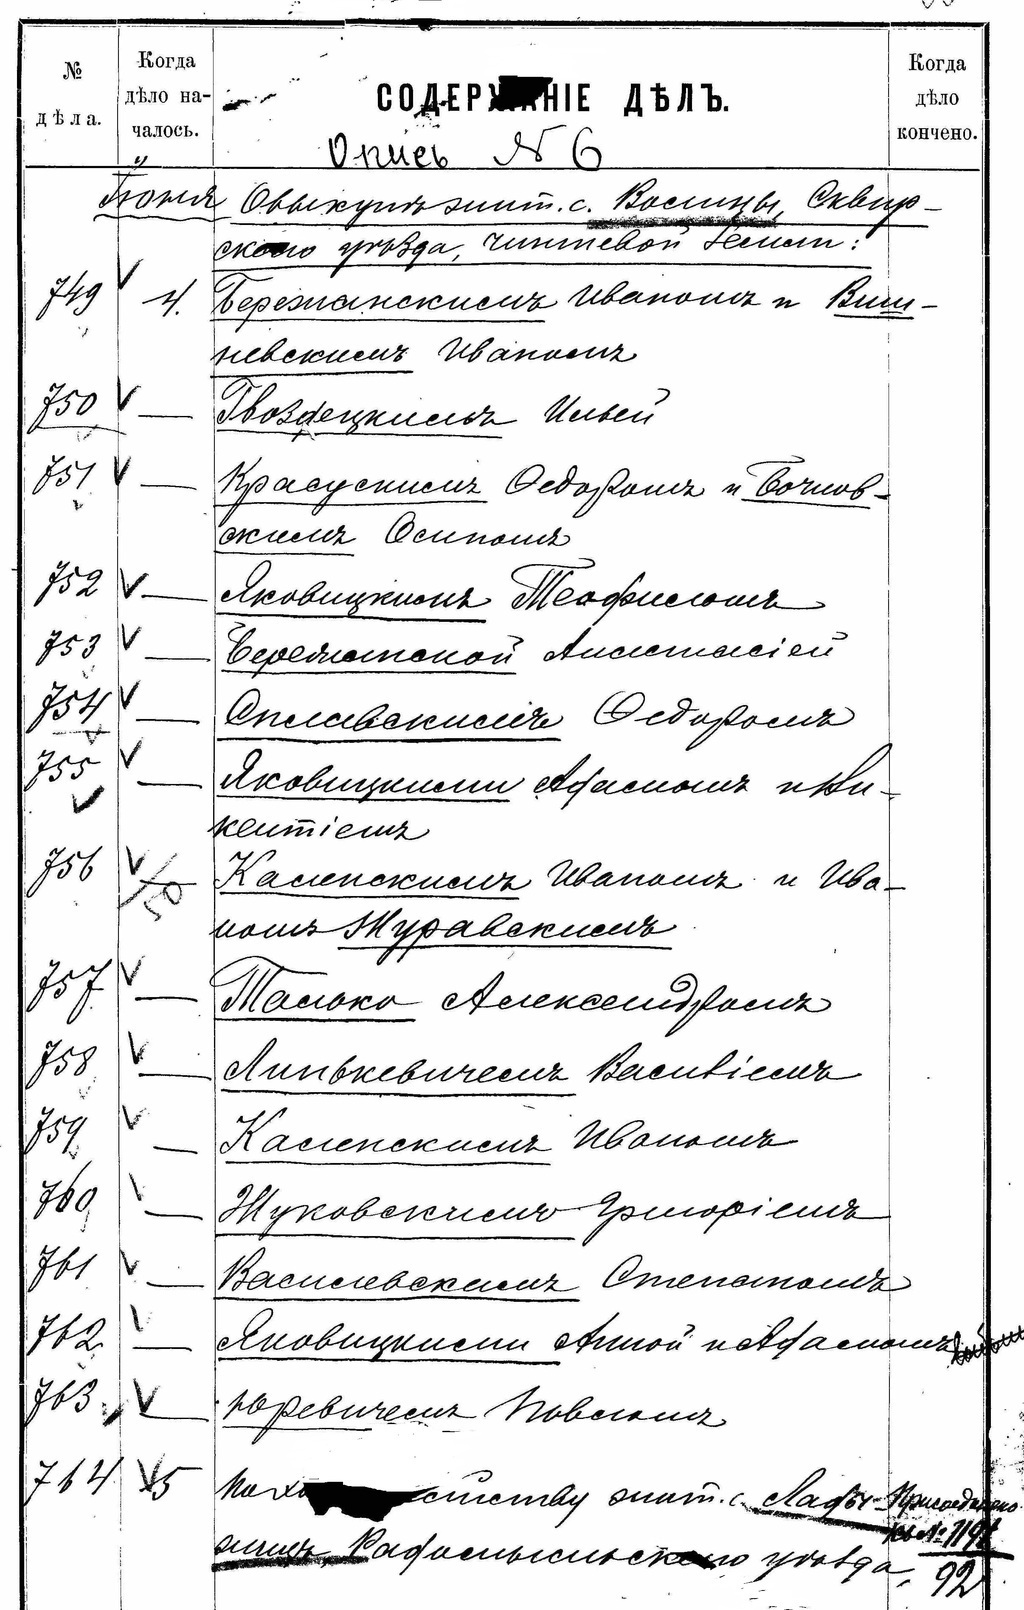 № дѣла.
Когда дѣло началось.
СОДЕРЖАНІЕ ДѢЛЪ.
Когда дѣло кончено.
Опись № 6
Іюня О выкупѣ жит. с. Василы, Сквир-
скаго уѣзда, чиншевой земли:
749 4. Бережанскимъ Иваномъ и Виш-
невскимъ Иваномъ
750 — Гвоздецкимъ Ильей
751 — Красускимъ Ѳедоромъ и Бочков-
скимъ Осипомъ
752 — Яковицкимъ Теофиломъ
753 — Анастасіей
754 — Сплавскимъ Ѳедоромъ
755 — Яковицкими Афаномъ и Ви-
кентіемъ
756 — Каменскимъ Иваномъ и Ива-
50
номъ Журавскимъ
757 — Талько Александромъ
758 — Линькевичемъ Василіемъ
759 — Каменскимъ Иваномъ
760 — Жуковскимъ Григоріемъ
761 — Василевскимъ Степаномъ
762 — Яковицкими Анной и
763 — Юревичемъ Павломъ
764 5 По жит. с.
Радомысльскаго уѣзда,
Присоединено
къ № 1192
92